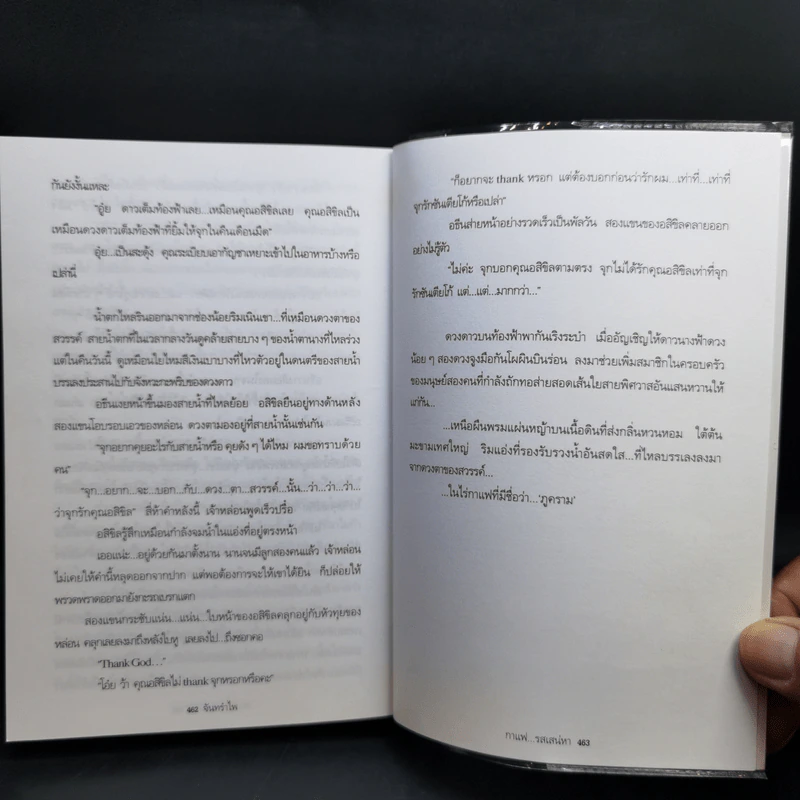 กันยังงั้นแหละ
"อุ๋ย ดาวเต็มท้องฟ้าเลย...เหมือนคุณอสิชิลเลย คุณอสิชิลเป็น
เหมือนดวงดาวเต็มท้องฟ้าที่ยิ้มให้จุกในคืนเดือนมืด"
อุ๋ย...เป็นสะดุ้ง คุณระเบียบเอากัญชาเหยาะเข้าไปในอาหารบ้างหรือ
เปล่านี่
น้ำตกไหลรินออกมาจากช่องน้อยริมเนินเขา...ที่เหมือนดวงตาของ
สวรรค์ สายน้ำตกที่ในเวลากลางวันดูคล้ายสายบาง ๆ ของน้ำตานางที่ไหลร่วง
แต่ในคืนวันนี้ ดูเหมือนใยไหมสีเงินเบาบางที่ไหวตัวอยู่ในดนตรีของสายน้ำ
บรรเลงประสานไปกับจังหวะกะพริบของดวงดาว
อธีนเงยหน้าขึ้นมองสายน้ำที่ไหลย้อย อสิชิลยืนอยู่ทางด้านหลัง
สองแขนโอบรอบเอวของหล่อน ดวงตามองอยู่ที่สายน้ำนั้นเช่นกัน
"จุกอยากคุยอะไรกับสายน้ำหรือ คุยดัง ๆ ได้ไหม ผมขอทราบด้วย
คน"
"จุก...อยาก...จะ...บอก...กับ...ดวง...ตา...สวรรค์...นั้น...ว่า...ว่า...ว่า...
ว่าจุกรักคุณอสิชิล" สี่ห้าคำหลังนี้ เจ้าหล่อนพูดเร็วปรื๋อ
อสิชิลรู้สึกเหมือนกำลังจมน้ำในแอ่งที่อยู่ตรงหน้า
เออแน่ะ...อยู่ด้วยกันมาตั้งนาน นานจนมีลูกสองคนแล้ว เจ้าหล่อน
ไม่เคยให้คำนี้หลุดออกจากปาก แต่พอต้องการจะให้เขาได้ยิน ก็ปล่อยให้
พรวดพราดออกมายังกะรถเบรกแตก
สองแขนกระชับแน่น...แน่น...ใบหน้าของอสิชิลคลุกอยู่กับหัวทุยของ
หล่อน คลุกเลยลงมาถึงหลังใบหู เลยลงไป...ถึงซอกคอ
"Thank God..."
"โอ๋ย ว้า คุณอสิชิลไม่ thank จุกหรอกหรือคะ"
462 จันทรำไพ
"ก็อยากจะ thank หรอก แต่ต้องบอกก่อนว่ารักผม...เท่าที่...เท่าที่
จุกรักซันเตียโก้หรือเปล่า"
อธีนส่ายหน้าอย่างรวดเร็วเป็นพัลวัน สองแขนของอสิชิลคลายออก
อย่างไม่รู้ตัว
"ไม่ค่ะ จุกบอกคุณอสิชิลตามตรง จุกไม่ได้รักคุณอสิชิลเท่าที่จุก
รักซันเตียโก้ แต่...แต่...มากกว่า..."
ดวงดาวบนท้องฟ้าพากันเริงระบำ เมื่ออัญเชิญให้ดาวนางฟ้าดวง
น้อย ๆ สองดวงจูงมือกันโผผินบินร่อน ลงมาช่วยเพิ่มสมาชิกในครอบครัว
ของมนุษย์สองคนที่กำลังถักทอสายสอดเส้นใยสายพิศวาสอันแสนหวานให้
แก่กัน...
...เหนือผืนพรมแผ่นหญ้าบนเนื้อดินที่ส่งกลิ่นหวนหอม ใต้ต้น
มะขามเทศใหญ่ ริมแอ่งที่รองรับรวงน้ำอันสดใส...ที่ไหลบรรเลงลงมา
จากดวงตาของสวรรค์...
...ในไร่กาแฟที่มีชื่อว่า...'ภูคราม'
กาแฟ...รสเสน่หา 463